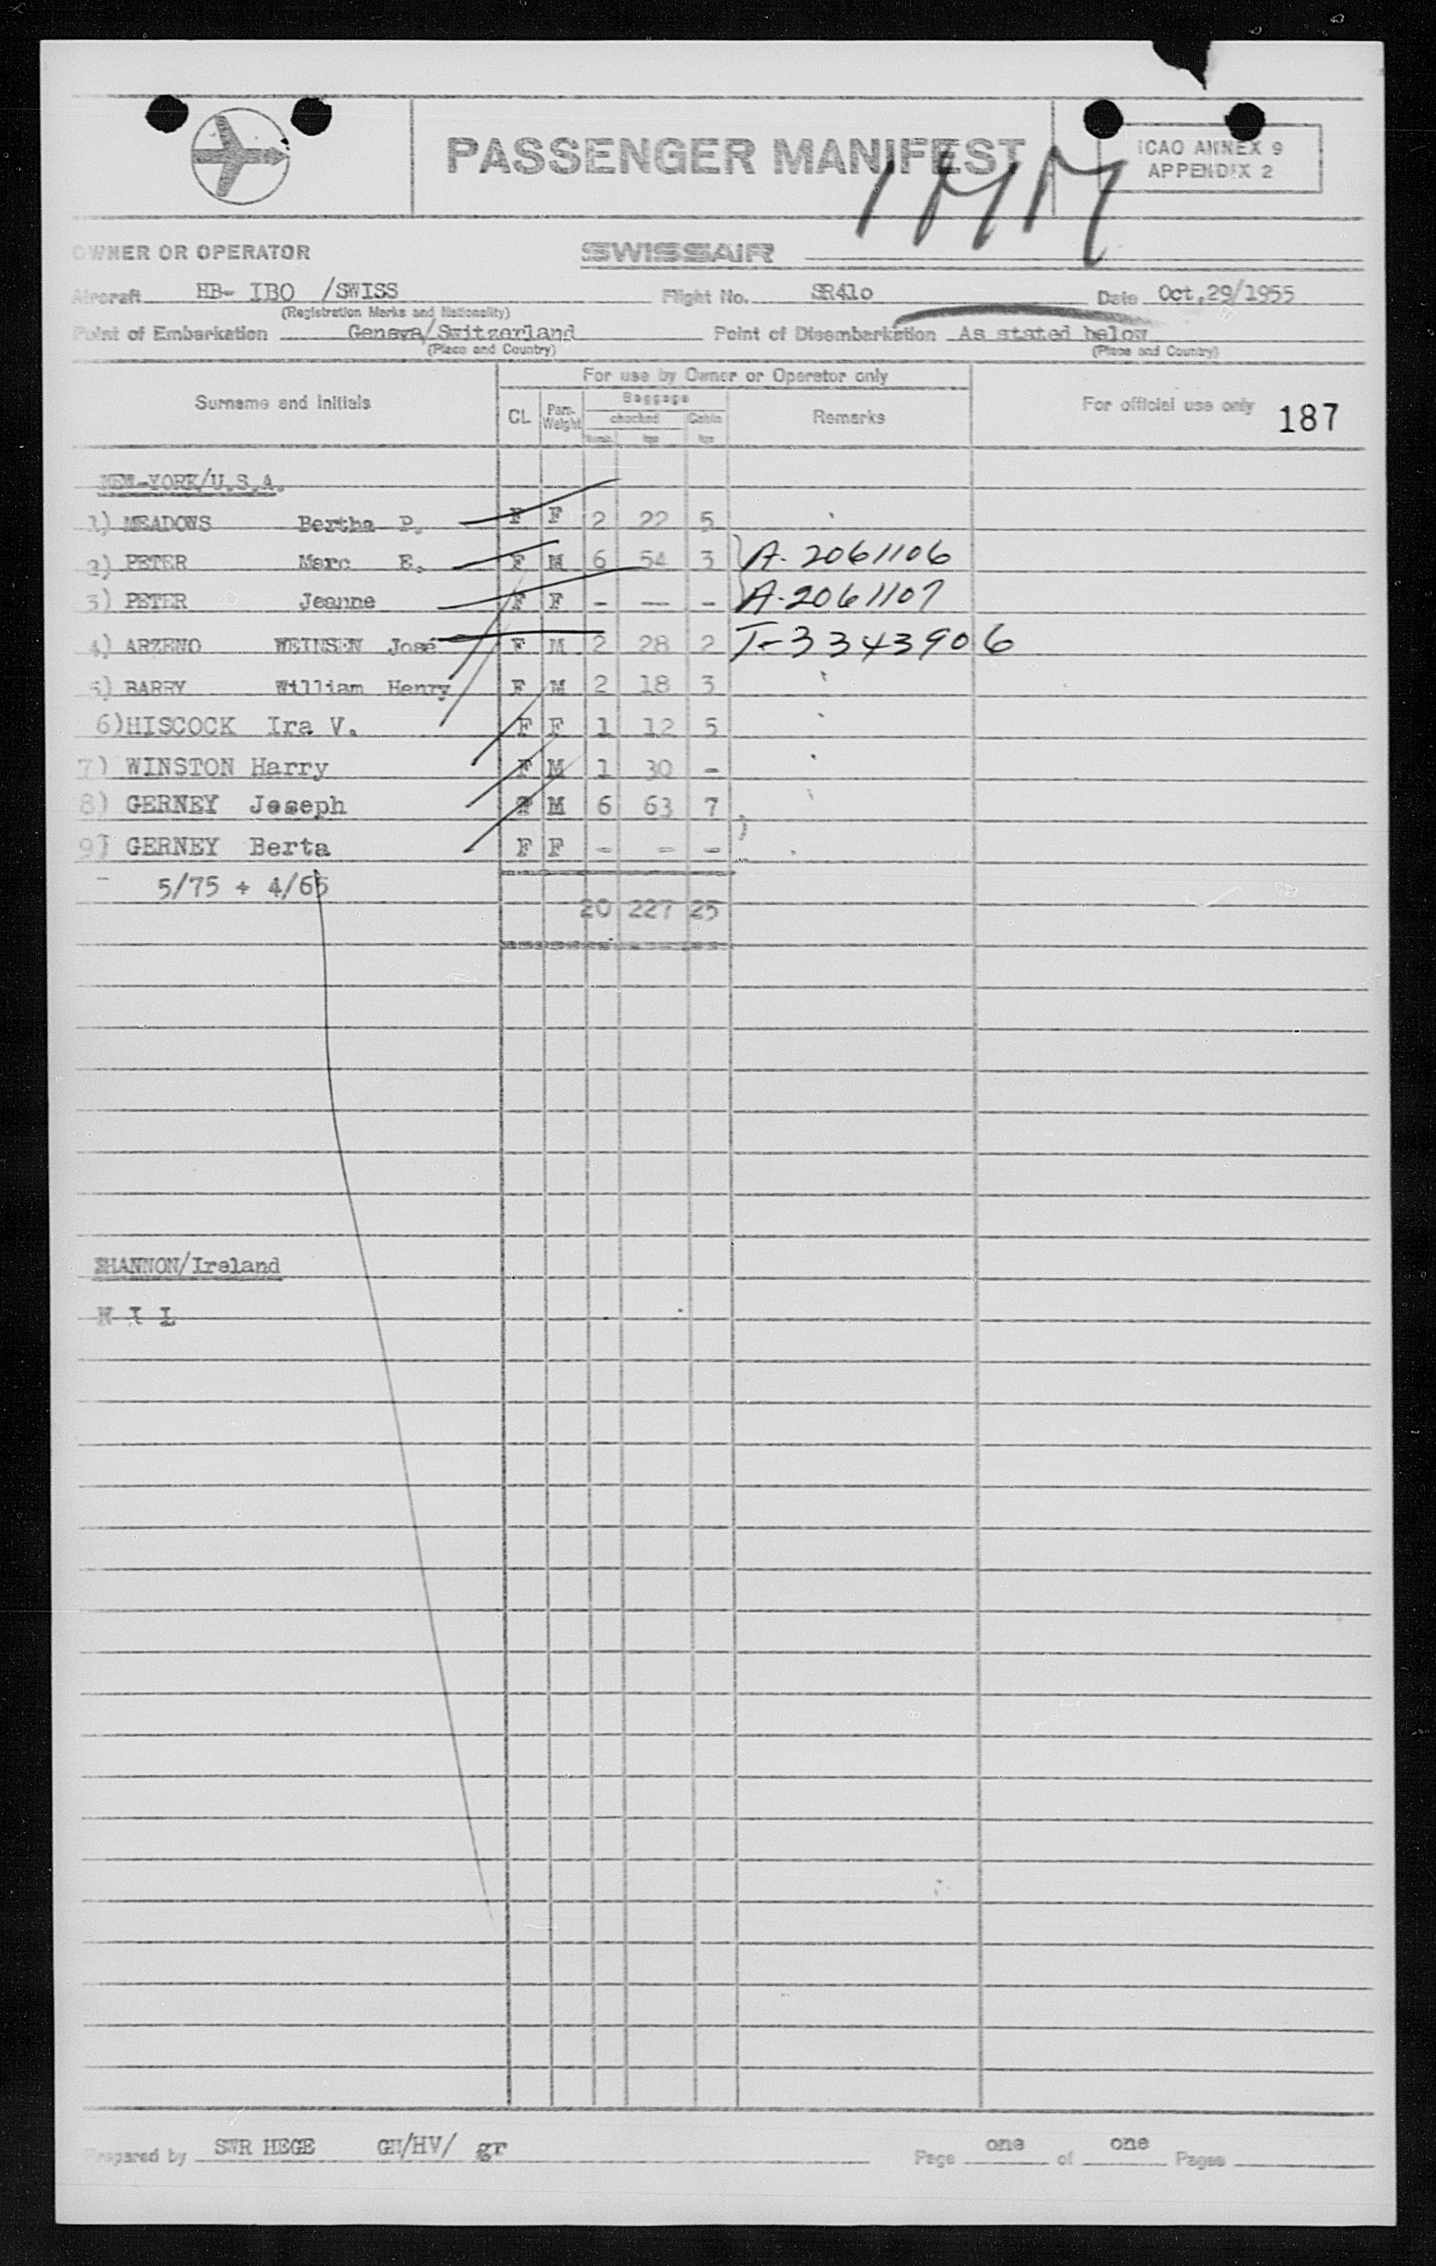 PASSENGER MANIFEST
ICAO ANNEX 9
APPENDIX 2
IMM
OWNER OR OPERATOR SWISSAIR
Aircraft HB- IBO /SWISS Flight No. SR41o Date Oct,29/1955
(Registration Marks and Nationality)
Point of Embarkation Geneva/Switzerland Point of Disembarkation As stated below
(Place and Country) (Place and Country)
For use by Owner or Operator only
Surname and initials CL Pass. Weight Baggage checked Cabin Remarks For official use only 187
NEW-YORK/U.S.A.
1) MEADOWS Bertha P. F F 2 22 5
2) PETER Marc E. F M 6 54 3 A-2061106
3) PETER Jeanne F F - - - A-2061107
4) ARZENO WEINSEN José F M 2 28 2 T-3343906
5) BARRY William Henry F M 2 18 3
6)HISCOCK Ira V. F F 1 12 5
7) WINSTON Harry F M 1 30 -
8) GERNEY Joseph F M 6 63 7
9) GERNEY Berta F F - - -
5/75 + 4/65
20 227 25
SHANNON/Ireland
N I L
Prepared by SWR HEGE GH/HV/ gr Page one of one Pages